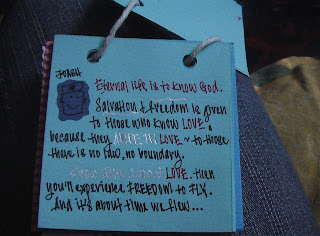 Eternal life is to know God.
Salvation & freedom is given
to those who know LOVE,
because they LOVE ~ to those
there is no law, no boundary.
LOVE. then
you'll experience FREEDOM to FLY.
And it's about time we flew...